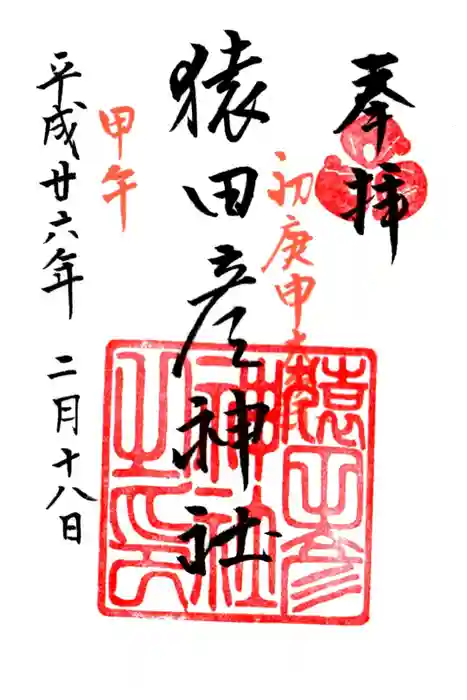 奉拝
初庚申大祭
猿田彦神社
猿田彦
神社
之印
甲午
平成廿六年 二月十八日